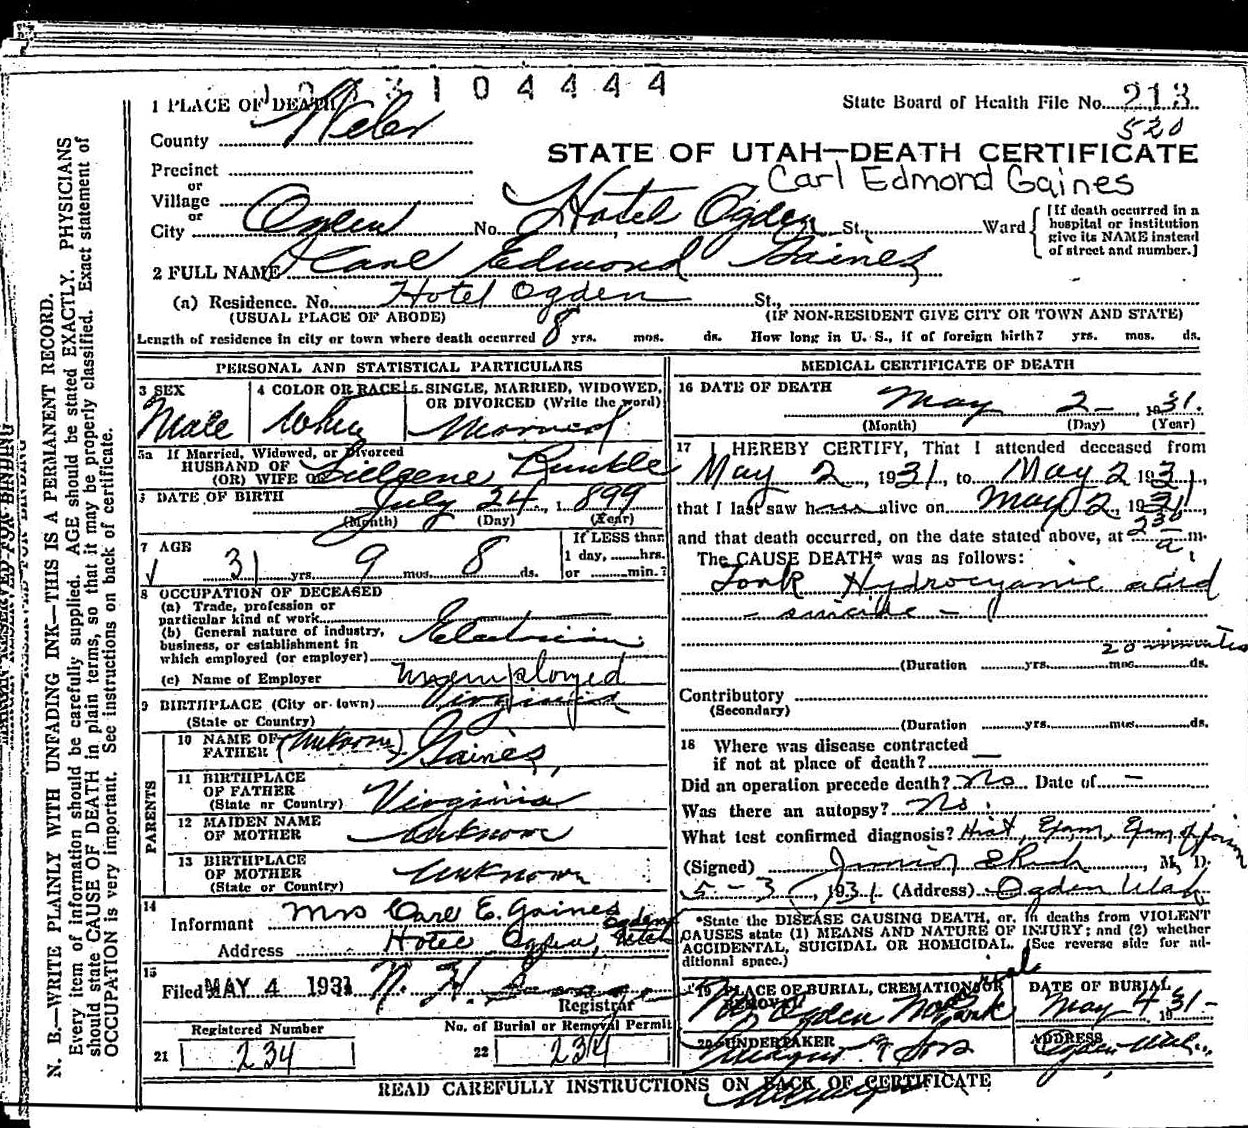 3104444
1 PLACE OF DEATH
State Board of Health File No. 213
520
County Weber
STATE OF UTAH—DEATH CERTIFICATE
Precinct
Carl Edmond Gaines
or
Village
or
City Ogden No. Hotel Ogden St. Ward [If death occurred in a hospital or institution give its NAME instead of street and number.]
2 FULL NAME Carl Edmond Gaines
(a) Residence. No. Hotel Ogden St.,
(USUAL PLACE OF ABODE) (IF NON-RESIDENT GIVE CITY OR TOWN AND STATE)
Length of residence in city or town where death occurred 8 yrs. mos. ds. How long in U. S., if of foreign birth? yrs. mos. ds.
PERSONAL AND STATISTICAL PARTICULARS
3 SEX 4 COLOR OR RACE 5 SINGLE, MARRIED, WIDOWED, OR DIVORCED (Write the word)
Male White Married
5a If Married, Widowed, or Divorced
HUSBAND OF
(OR) WIFE OF Runkle
6 DATE OF BIRTH July 24, 1899
(Month) (Day) (Year)
7 AGE 31 yrs. 9 mos. 8 ds. If LESS than 1 day, hrs. or min.?
8 OCCUPATION OF DECEASED
(a) Trade, profession or
particular kind of work Electrician
(b) General nature of industry,
business, or establishment in
which employed (or employer)
(c) Name of Employer Unemployed
9 BIRTHPLACE (City or town) Virginia
(State or Country)
PARENTS
10 NAME OF FATHER (Unknown) Gaines
11 BIRTHPLACE OF FATHER (State or Country) Virginia
12 MAIDEN NAME OF MOTHER Unknown
13 BIRTHPLACE OF MOTHER (State or Country) Unknown
14 Informant Mrs Carl E. Gaines
Address Hotel Ogden, Ogden Utah
15 Filed MAY 4 1931 N. H.
Registrar
Registered Number No. of Burial or Removal Permit
21 234 22 234
MEDICAL CERTIFICATE OF DEATH
16 DATE OF DEATH May 2- 1931.
(Month) (Day) (Year)
17 I HEREBY CERTIFY, That I attended deceased from
May 2, 1931, to May 2 1931,
that I last saw h alive on May 2, 1931,
and that death occurred, on the date stated above, at 2 30 a m.
The CAUSE DEATH* was as follows:
Took Hydrocyanic acid
- suicide -
20 minutes
(Duration yrs. mos. ds.
Contributory
(Secondary)
(Duration yrs. mos. ds.
18 Where was disease contracted
if not at place of death? —
Did an operation precede death? No Date of —
Was there an autopsy? No.
What test confirmed diagnosis? Hist, Exam, Exam of poison
(Signed) Junior M. D.
5-3, 1931 (Address) Ogden Utah
*State the DISEASE CAUSING DEATH, or, in deaths from VIOLENT
CAUSES state (1) MEANS AND NATURE OF INJURY; and (2) whether
ACCIDENTAL, SUICIDAL OR HOMICIDAL. (See reverse side for additional space.)
19 PLACE OF BURIAL, CREMATION OR REMOVAL DATE OF BURIAL
Ogden Park May 4 1931-
20 UNDERTAKER ADDRESS
& Sons Ogden Utah
READ CAREFULLY INSTRUCTIONS ON BACK OF CERTIFICATE
MARGIN RESERVED FOR BINDING
N. B.—WRITE PLAINLY WITH UNFADING INK—THIS IS A PERMANENT RECORD.
Every item of information should be carefully supplied. AGE should be stated EXACTLY. PHYSICIANS
should state CAUSE OF DEATH in plain terms, so that it may be properly classified. Exact statement of
OCCUPATION is very important. See instructions on back of certificate.